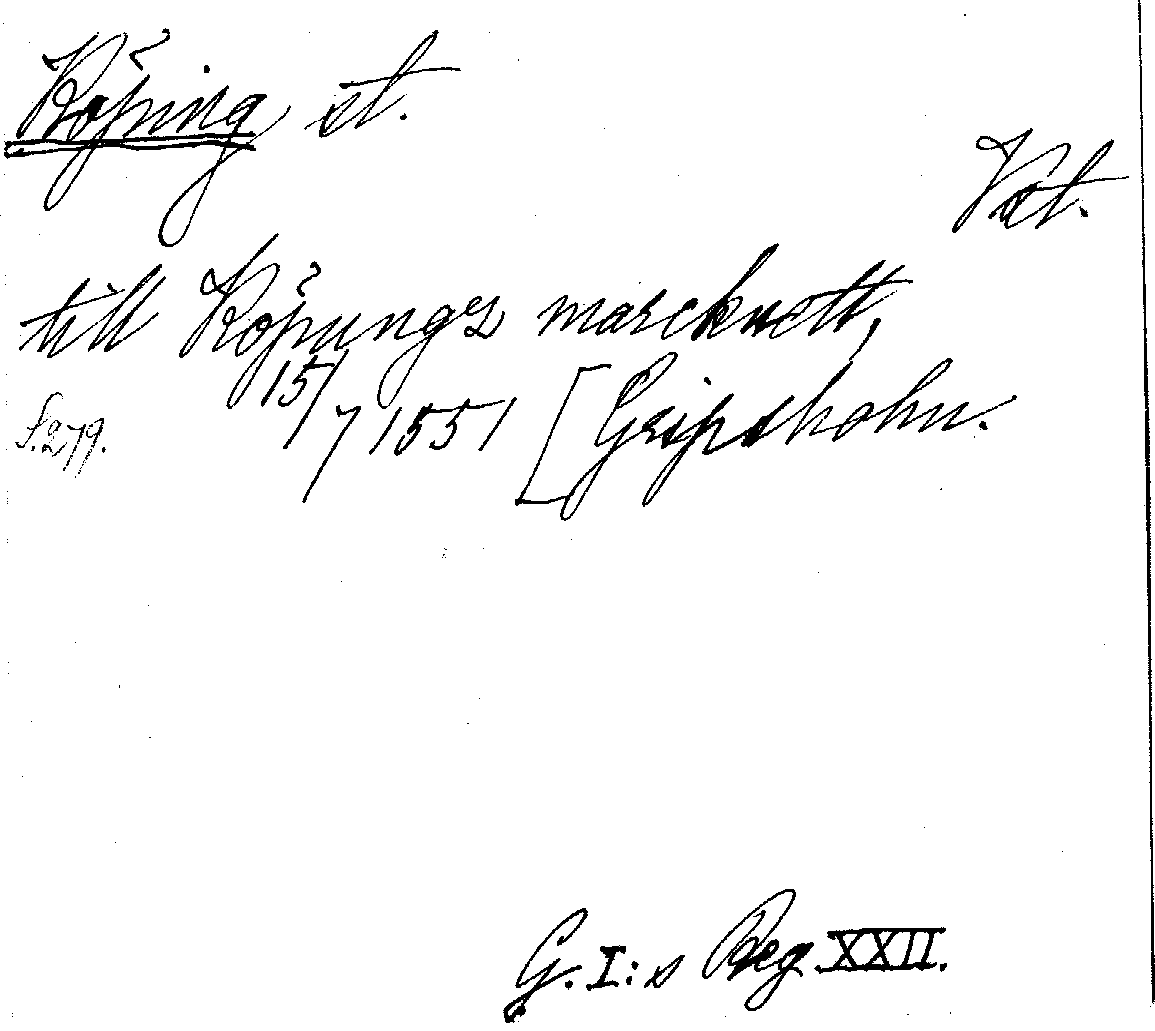 Köping st.
Vst.
till Köpungz marcknett,
S. 279. 15/7 1551 [Gripsholm.
G. I:s Reg. XXII.